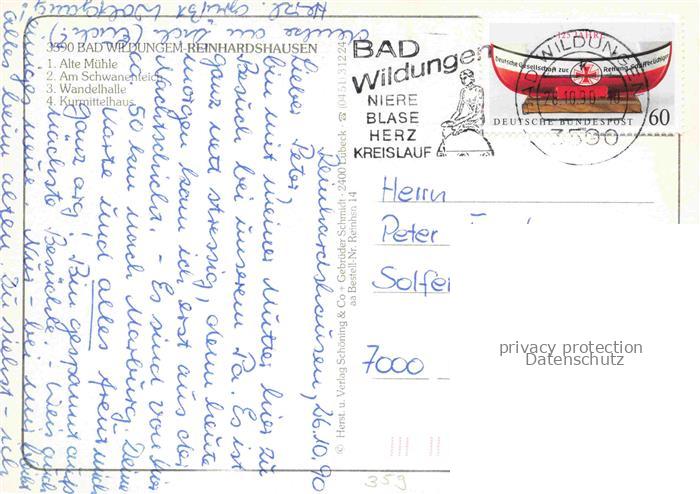 3590 BAD WILDUNGEM-REINHARDSHAUSEN
1. Alte Mühle
2. Am Schwanenteich
3. Wandelhalle
4. Kurmittelhaus
Reinhardshausen, 26.10.90
Lieber Peter!
bin mit meiner Mutter hier zu
Besuch bei unserem Pa. Es ist
ganz nett stressig, denn heute
morgen kam ich erst aus der
Nachtschicht. - Es sind von hier
50 km nach Marburg. Deine
Karte und alles freut mich
ganz arg! Bin gespannt auf's
nächste Besüchle! - Weis auch
Neues. Nur - bei mir bleibt
alles beim alten
© Herst. u. Verlag Schöning & Co + Gebrüder Schmidt · 2400 Lübeck ☎ (0451) 31224
aa Bestell-Nr. Reinhsn 14
BAD
Wildungen
NIERE
BLASE
HERZ
KREISLAUF
BAD WILDUNGEN
26.10.90
3590
125 JAHRE
Deutsche Gesellschaft zur Rettung Schiffbrüchiger
DEUTSCHE BUNDESPOST 60
Herrn
Peter
Solfe
7000
privacy protection
Datenschutz
359